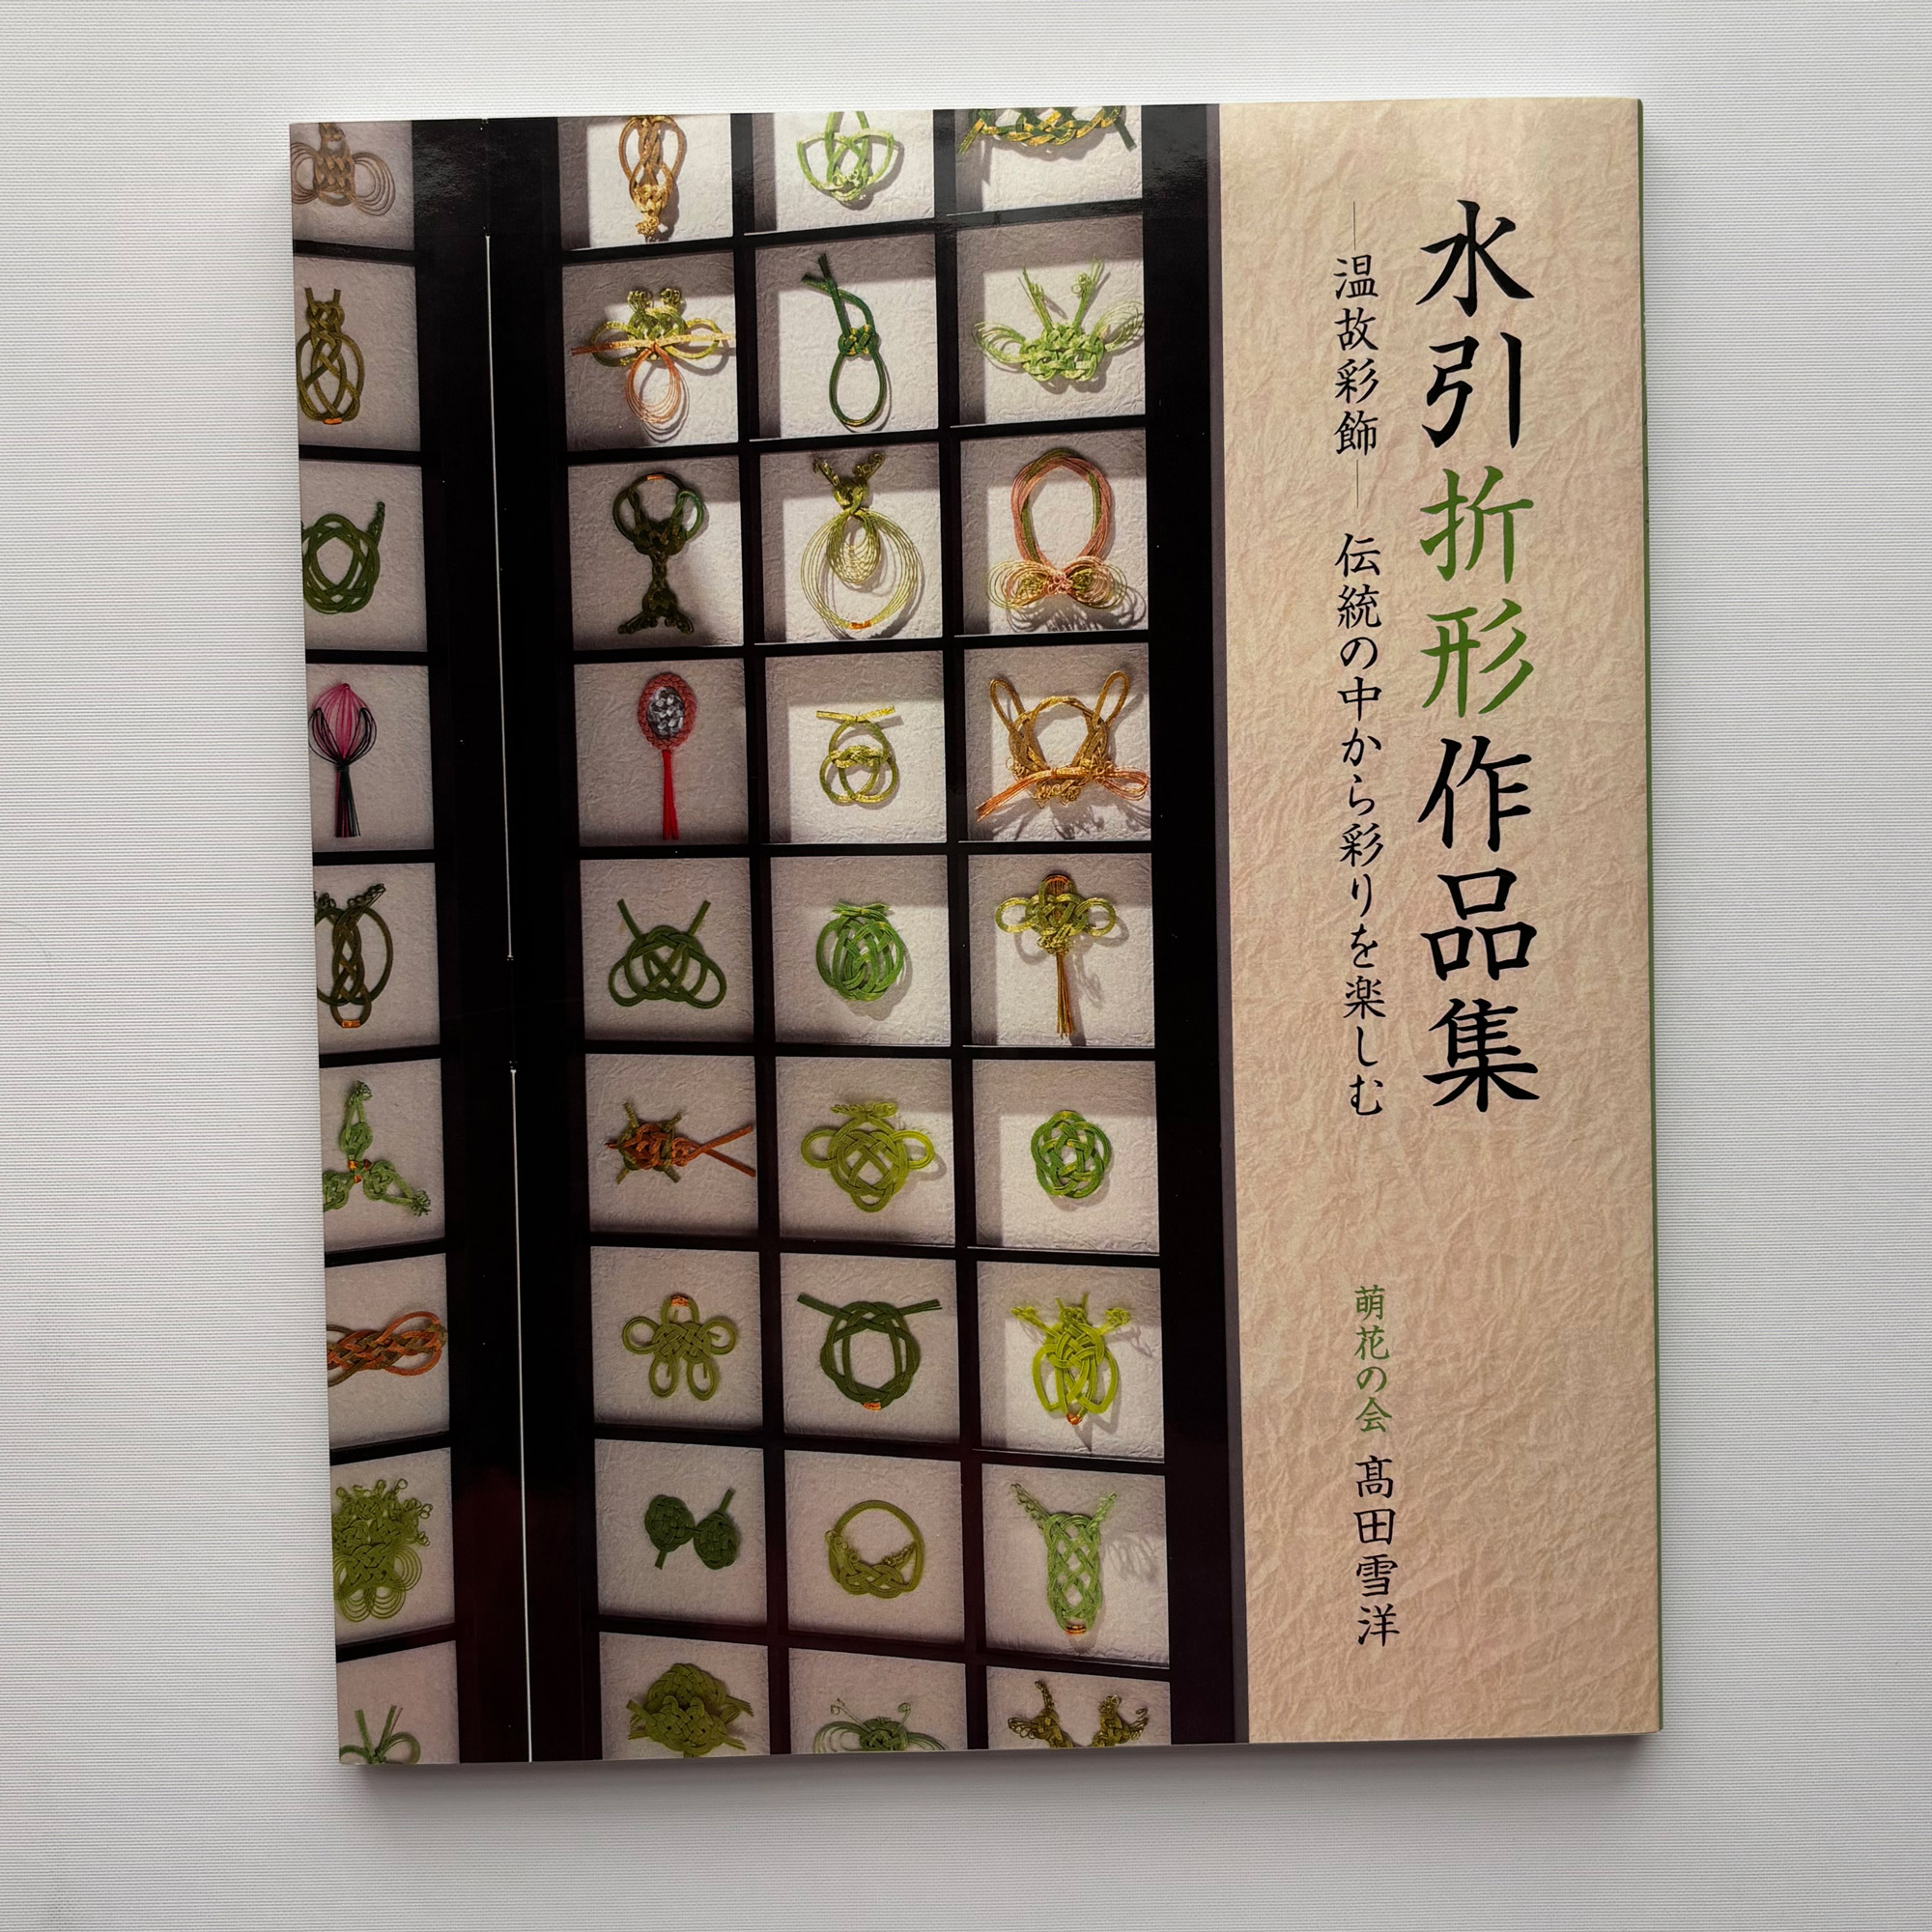 水引折形作品集
―温故彩飾― 伝統の中から彩りを楽しむ
萌花の会 髙田雪洋